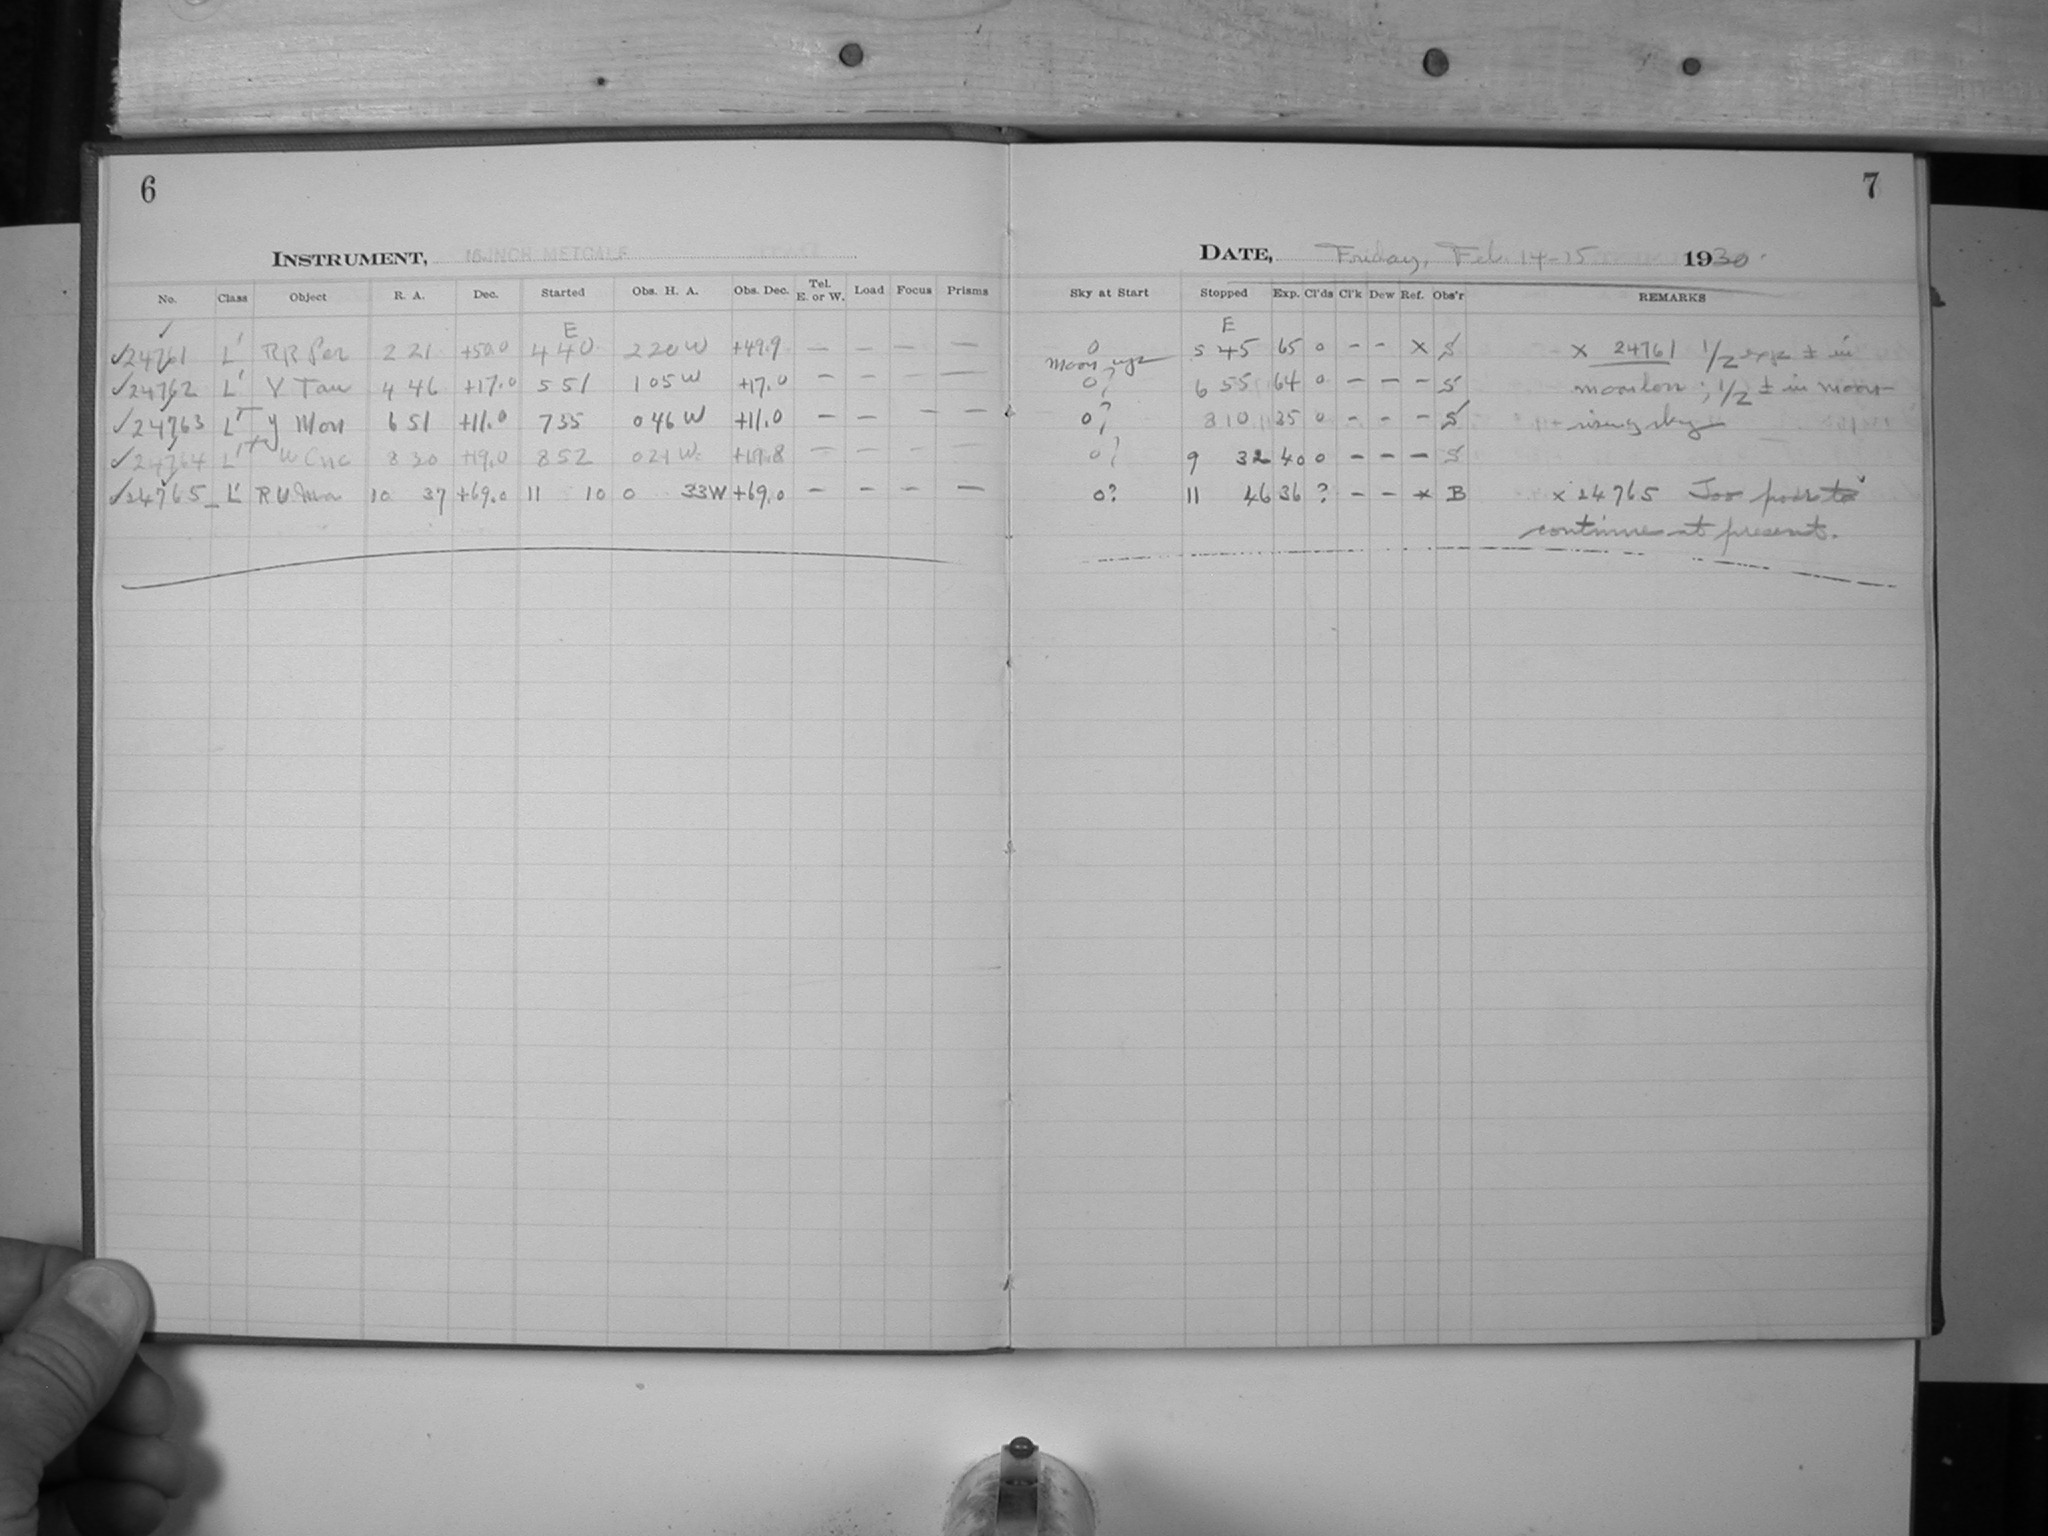 6
7
INSTRUMENT, 16-INCH METCALF
DATE, Friday, Feb. 14-15 1930
No. Class Object R. A. Dec. Started Obs. H. A. Obs. Dec. Tel. E. or W. Load Focus Prisms Sky at Start Stopped Exp. Cl'ds Cl'k Dew Ref. Obs'r REMARKS
E E
✓24761 L' RR Per 2 21 +50.0 4 40 2 20 W +49.9 — — — — 0 5 45 65 0 – – X S X 24761 1/2 exp ± in
Moon up
✓24762 L' V Tau 4 46 +17.0 5 51 1 05 W +17.0 — — — — 0? 6 55 64 0 – – – S moonless; 1/2 ± in moon-
✓24763 L' Y Mon 6 51 +11.0 7 35 0 46 W +11.0 — — — — 0? 8 10 35 0 – – – S rising sky
✓24764 L' U Cnc 8 30 +19.0 8 52 0 21 W +19.8 — — — — 0? 9 32 40 0 – – – S
✓24765 L' R U Ma 10 37 +69.0 11 10 0 33 W +69.0 — — — — 0? 11 46 36 ? – – X B X 24765 Too poor to
continue at present.